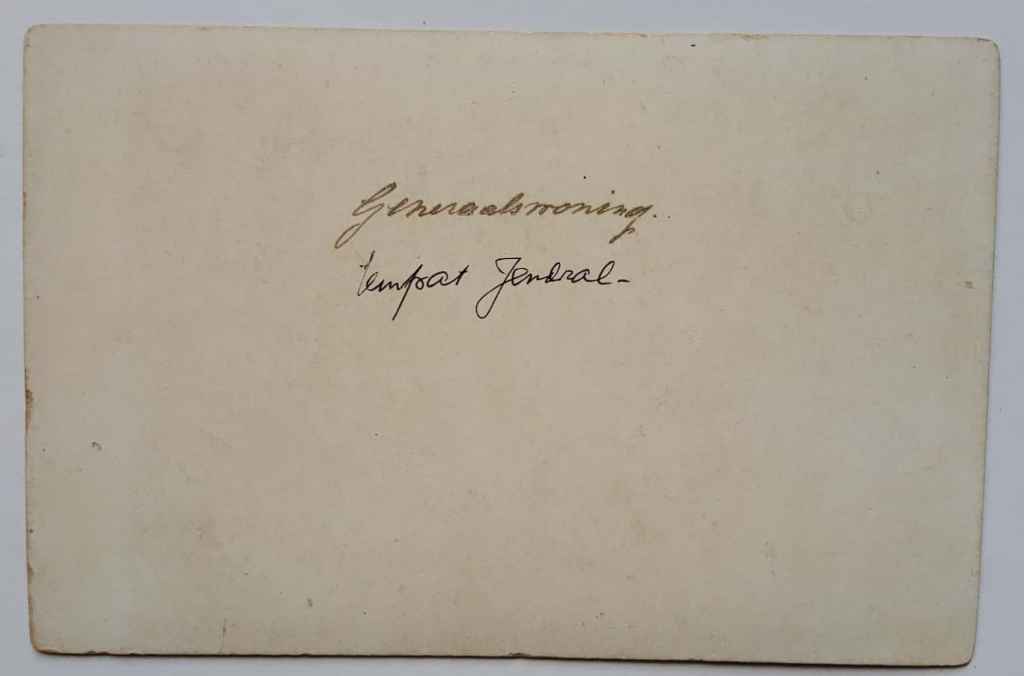 Generaalswoning.
tempat Jendral-